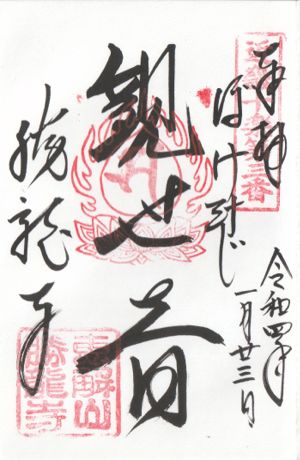 近畿十楽第三番
奉拝
ぼけ封じ
令和四年
一月廿三日
観世音
勝龍寺
恵解山
勝龍寺